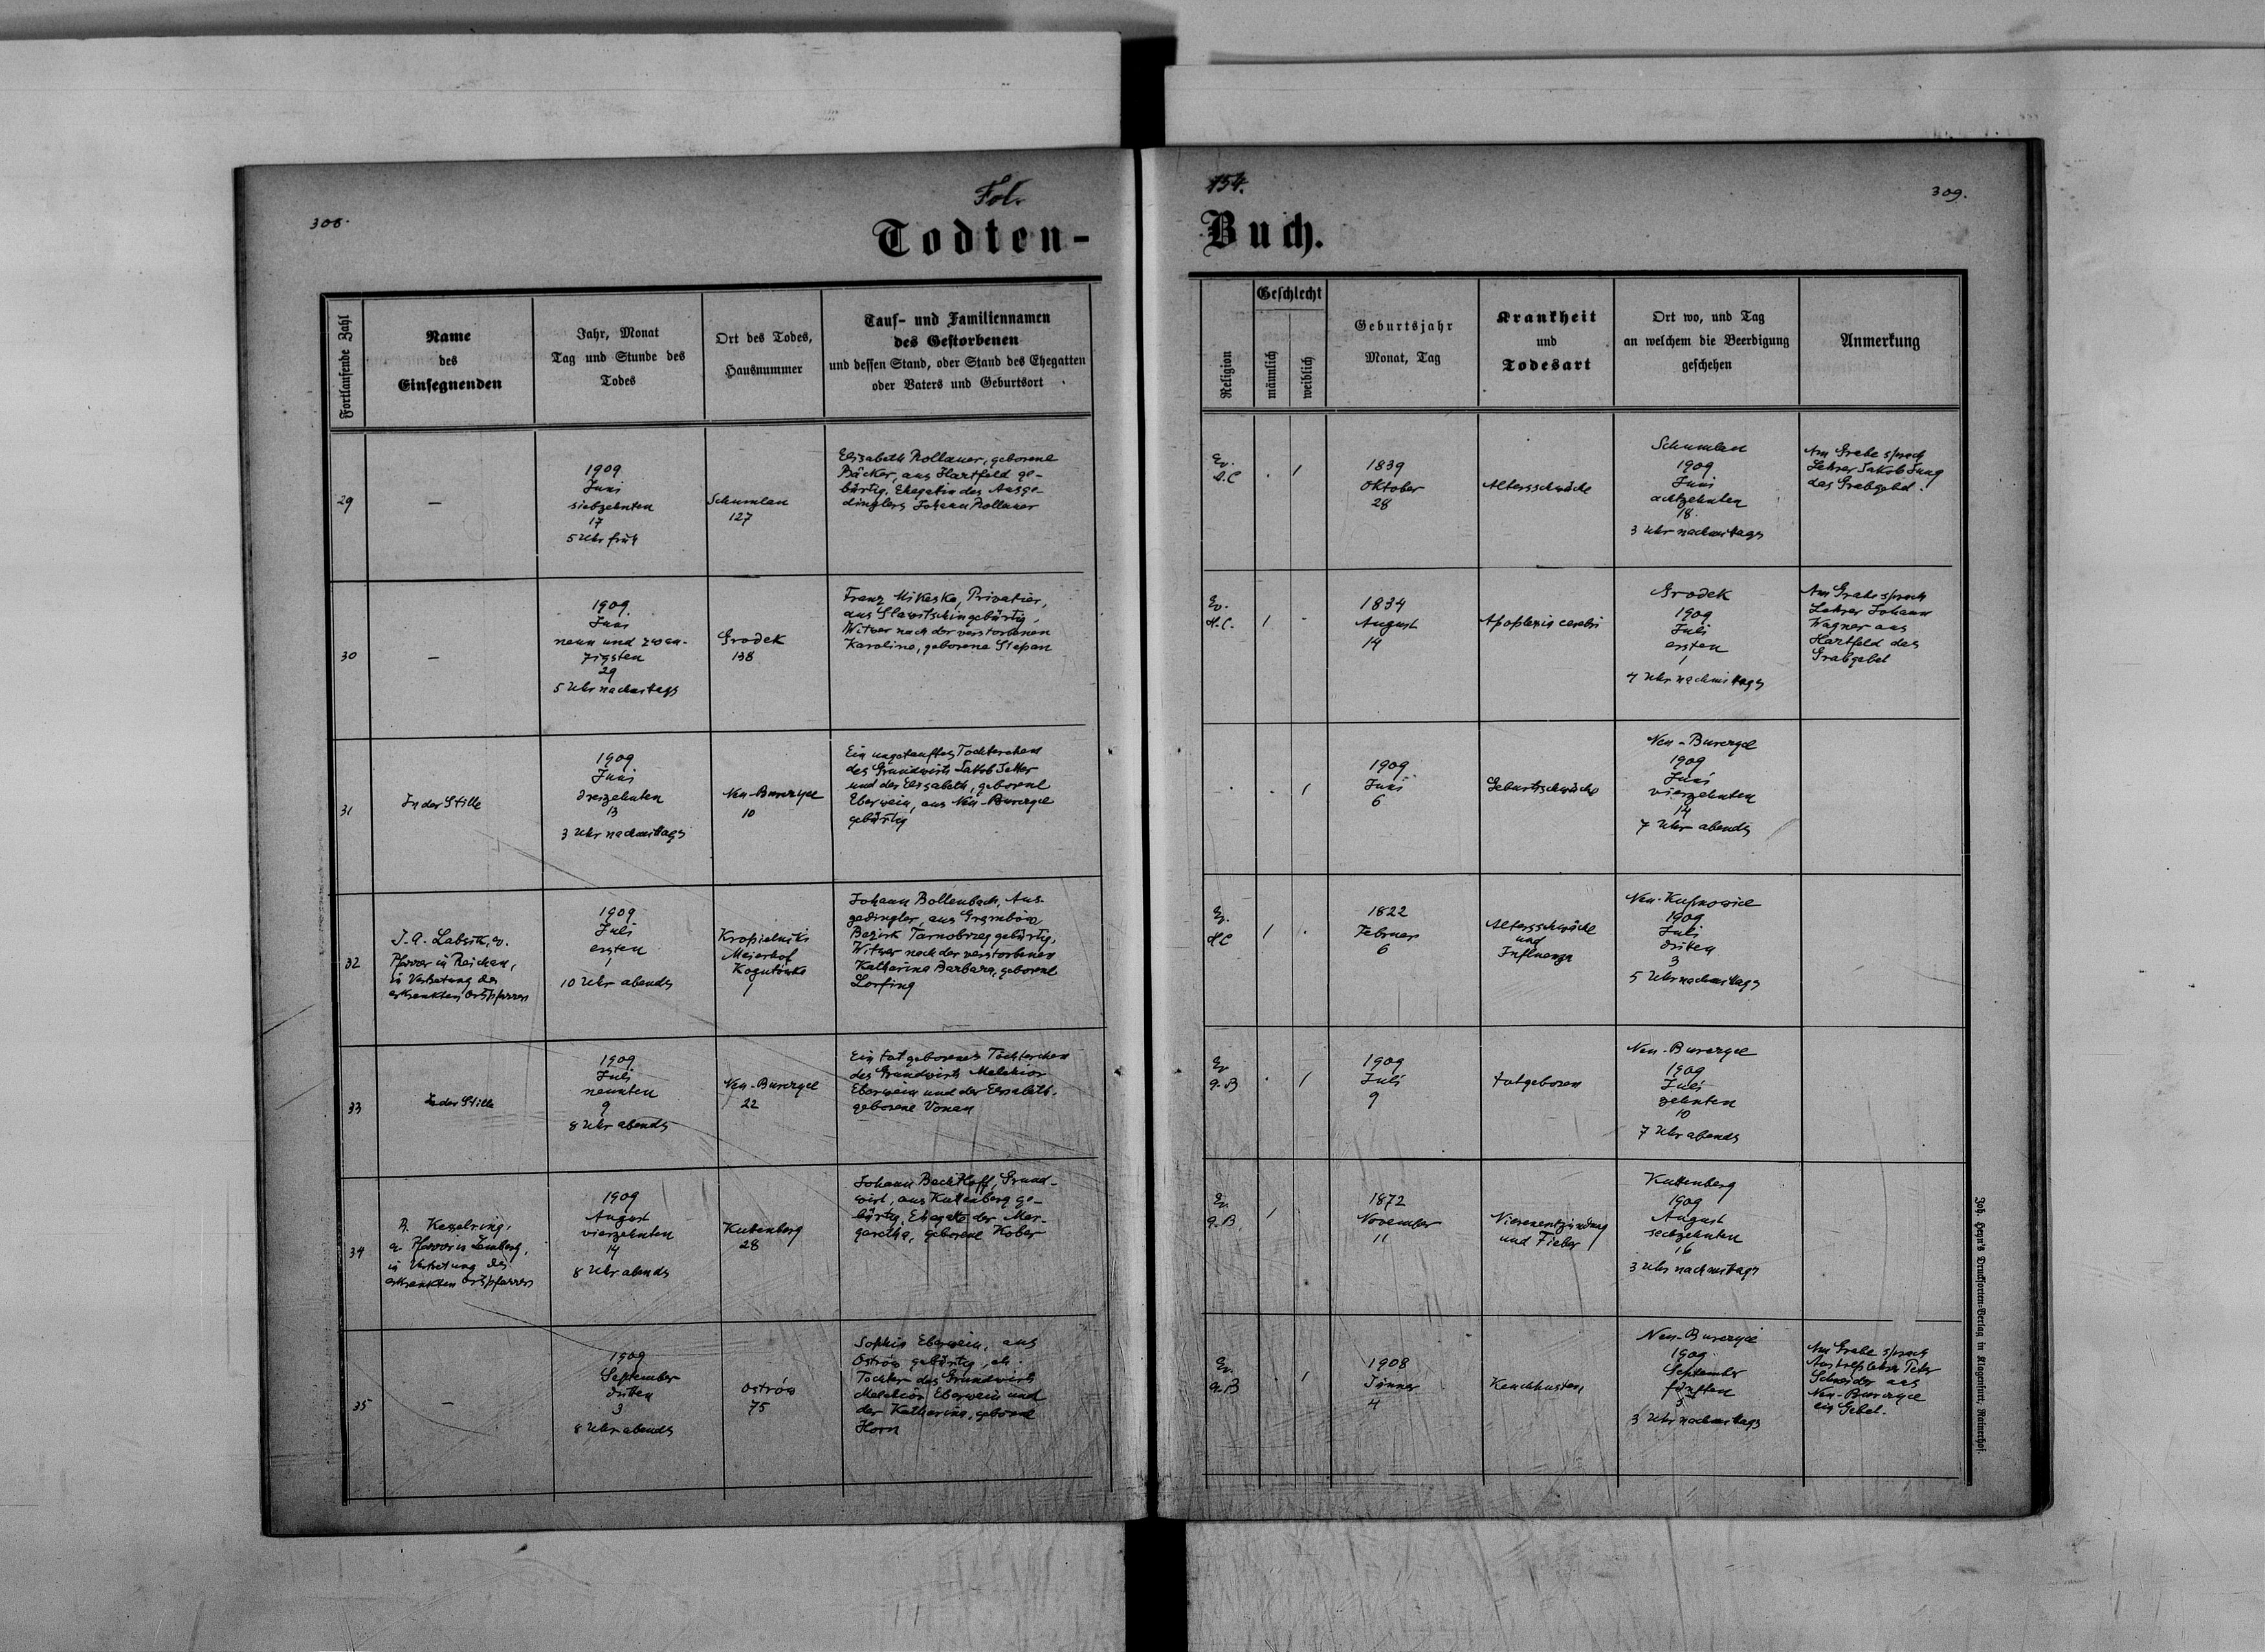 308.
Fol.
154.
309.
Todten-
Buch.
Fortlaufende Zahl
Name
des
Einsegnenden
Jahr, Monat
Tag und Stunde des
Todes
Ort des Todes,
Hausnummer
Tauf- und Familiennamen
des Gestorbenen
und dessen Stand, oder Stand des Ehegatten
oder Vaters und Geburtsort
Religion
Geschlecht
männlich
weiblich
Geburtsjahr
Monat, Tag
Krankheit
und
Todesart
Ort wo, und Tag
an welchem die Beerdigung
geschehen
Anmerkung
29
—
1909
Juni
siebzehnten
17
5 Uhr früh
Schumlau
127
Elisabeth Rollauer, geborene
Bäcker, aus Hartfeld ge-
bürtig, Ehegatin des Ausge-
dinglers Johann Rollauer
Ev.
A.C
.
1
1839
Oktober
28
Altersschwäche
Schumlau
1909
Juni
achtzehnten
18
3 Uhr nachmittags
Am Grabe sprach
Lehrer Jakob Jung
das Grabgebet.
30
—
1909
Juni
neun und zwan-
zigsten
29
5 Uhr nachmittags
Grodek
138
Franz Mikeska, Privatier,
aus Slawitschin gebürtig,
Witwer nach der verstorbenen
Karoline, geborene Stepan
Ev.
H.C.
1
.
1834
August
14
Apoplexia cerebri
Grodek
1909
Juli
ersten
1
4 Uhr nachmittags
Am Grabe sprach
Lehrer Johann
Wagner aus
Hartfeld das
Grabgebet
31
In der Stille
1909
Juni
dreizehnten
13
3 Uhr nachmittags
Neu-Burczyce
10
Ein ungetauftes Töchterchen
des Grundwirts Jakob Jetter
und der Elisabeth, geborene
Eberwein, aus Neu-Burczyce
gebürtig
.
.
1
1909
Juni
6
Geburtsschwäche
Neu-Burczyce
1909
Juni
vierzehnten
14
7 Uhr abends
32
J. A. Labsik, ev.
Pfarrer in Reichau,
in Vertretung des
erkrankten Ortspfarrers
1909
Juli
ersten
1
10 Uhr abends
Kropielniki
Meierhof
Kogutówka
1
Johann Bollenbach, Aus-
gedingler, aus Grembów,
Bezirk Tarnobrzeg gebürtig,
Witwer nach der verstorbenen
Katharina Barbara, geborene
Lorfing
Ev.
HC
1
.
1822
Februar
6
Altersschwäche
und
Influenza
Neu-Kupnowice
1909
Juli
dritten
3
5 Uhr nachmittags
33
In der Stille
1909
Juli
neunten
9
8 Uhr abends
Neu-Burczyce
22
Ein totgeborenes Töchterchen
des Grundwirts Melchior
Eberwein und der Elisabeth,
geborene Vonau
Ev
g.B
.
1
1909
Juli
9
totgeboren
Neu-Burczyce
1909
Juli
zehnten
10
7 Uhr abends
34
Kesselring,
ev. Pfarrer in Lemberg,
in Vertretung des
erkrankten Ortspfarrers
1909
August
vierzehnten
14
8 Uhr abends
Kuttenberg
28
Johann Bechtloff, Grund-
wirt, aus Kuttenberg ge-
bürtig, Ehegatte der Mar-
garetha, geborene Kober
Ev.
g.B
1
1872
November
11
Nierenentzündung
und Fieber
Kuttenberg
1909
August
sechzehnten
16
3 Uhr nachmittags
35
—
1909
September
dritten
3
8 Uhr abends
Ostrów
75
Sophie Eberwein, aus
Ostrów gebürtig, ehl.
Tochter des Grundwirts
Melchior Eberwein und
der Katharina, geborene
Horn
Ev.
g.B
.
1
1908
Jänner
4
Keuchhusten
Neu-Burczyce
1909
September
fünften
5
3 Uhr nachmittags
Am Grabe sprach
Aushilfslehrer Peter
Schneider aus
Neu-Burczyce
ein Gebet.
Joh. Heyn's Drucksorten-Verlag in Klagenfurt, Rainerhof.